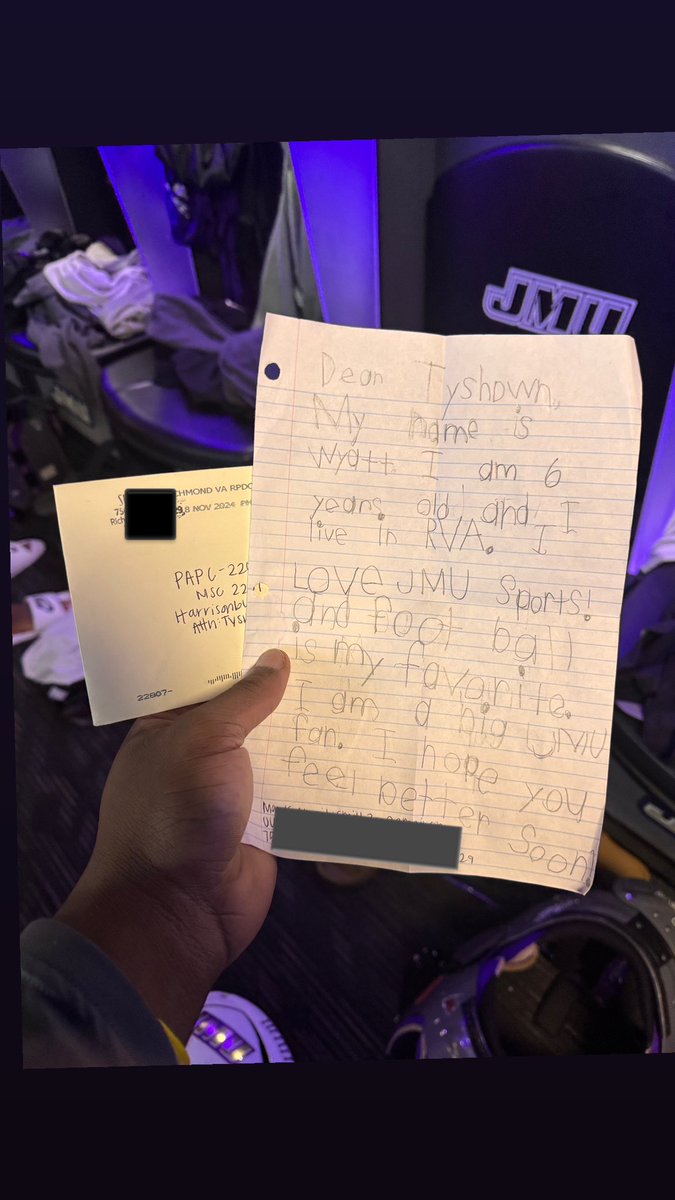 JMU
Dear Tyshawn,
My name is
Wyatt. I am 6
years old, and I
live in RVA. I
LOVE JMU Sports!
and Foot ball
is my favorite.
I am a big JMU
fan. I hope you
feel better Soon
29
RICHMOND VA RPDC
8 NOV 2024 PM
PAPC-220
MSC 22
Harrisonbu
Attn: Tysh
22807-
JMU